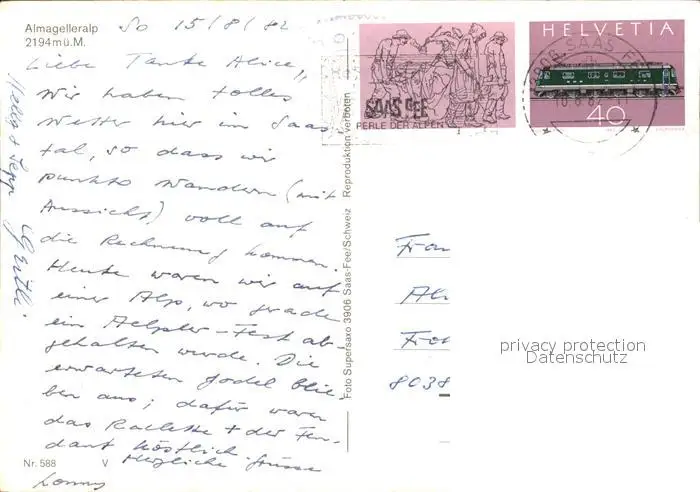 Almagelleralp
2194 m ü. M.
So 15/8/82
Liebe Tante Alice,
Wir haben tolles
Wetter hier im Saas-
tal, so dass wir
punkto Wandern (mit
Aussicht) voll auf
die Rechnung kommen.
Heute waren wir auf
einer Alp, wo gerade
ein Aelpler-Fest ab-
gehalten wurde. Die
erwarteten Jodel blie-
ben aus; dafür waren
das Raclette + der Fen-
dant köstlich
Herzliche Grüsse
Nr. 588
V
Foto Supersaxo 3906 Saas-Fee/Schweiz Reproduktion verboten
SAAS FEE
PERLE DER ALPEN
HELVETIA
40
SAAS
8038
privacy protection
Datenschutz